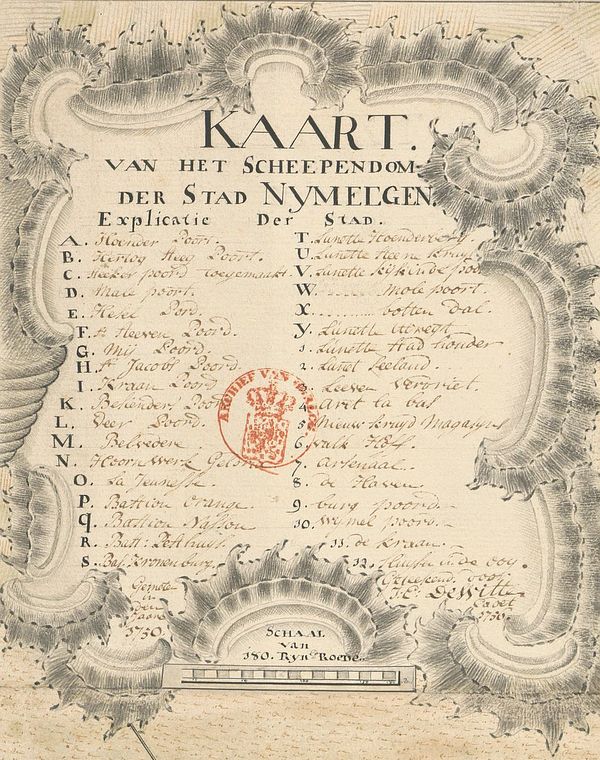 KAART.
VAN HET SCHEEPENDOM
DER STAD NYMEEGEN.
Explicatie Der Stad.
A. Hoender Poort.
B. Hertog Steeg Poort.
C. Heeker poord toegemaakt.
D. Male poort.
E. Hesel Pord.
F. St Steeven Poord.
G. Mij Poord.
H. St Jacobs Poord
I. Kraan Poord
K. Besienders Poort
L. Veer Poord.
M. Belvedere.
N. Hoorn Werk
O. La Jeunesse.
P. Bastion Orange.
Q. Bastion Nassou
R. Bast:
S. Bas: Kronenburg.
T. Lunette Hoenderberg
U. Lunette Steene Kruys
V. Lunette kyk in de poo
W. mole poort.
X. botten dal.
Y. Lunette
1. Lunette Stad
2. Lunet Seeland
3. Leeven
4.
5. Nieuw kruyd Magasyn
6. Valk Hoff
7. Arsenaal.
8. de Haven.
9. burg poord
10. Wymel poord.
11. de kraan.
12. in de ooy.
Gemeten
in
den
Jaare
1750.
Geteekend door
DeWitte
Cadet
1750.
ARCHIEF VAN
SCHAAL
van
180. Rynse Roede.